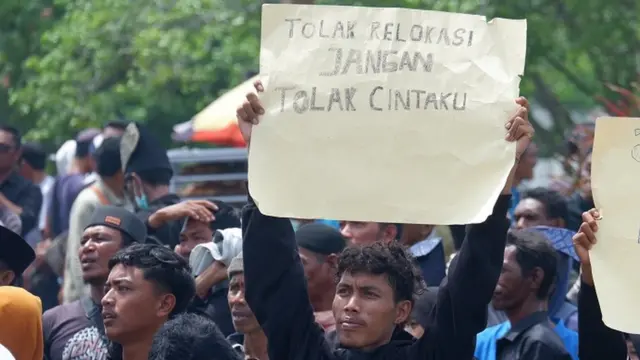 TOLAK RELOKASI
JANGAN
TOLAK CINTAKU